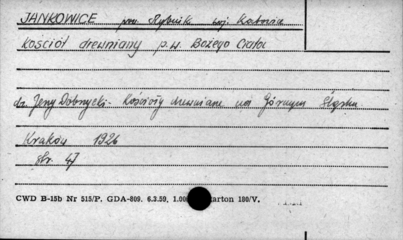 JANKOWICE pow. Rybnik woj. Katowice
Kościół drewniany p.w. Bożego Ciała
dr. Jerzy Dobrzycki - Kościoły drewniane na Górnym Śląsku
Kraków 1926
str. 47
CWD B-15b Nr 515/P. GDA-809. 6.3.59, 1.00 karton 180/V.